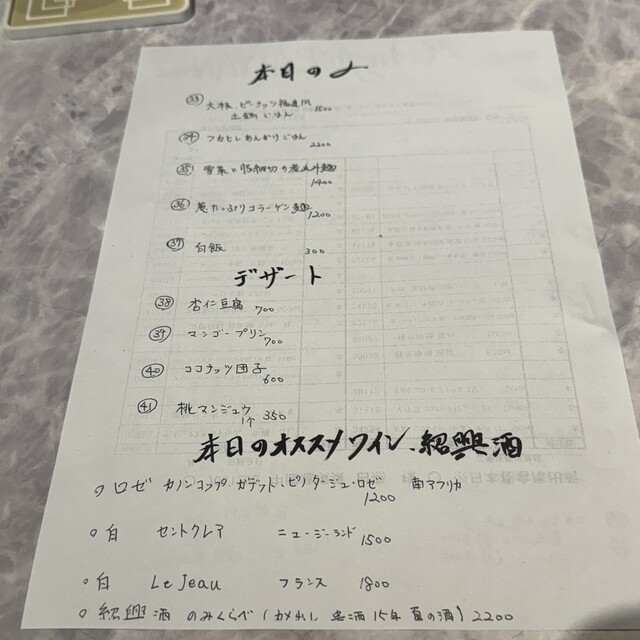 本日の〆
㉝ 大根、ピーナッツ 1500
土鍋ごはん
㉞ フカヒレあんかけごはん
2200
㉟ 雪菜と豚細切り煮込み麺
1400
㊱ 葱たっぷりコラーゲン麺
1200
㊲ 白飯 300
デザート
㊳ 杏仁豆腐 700
㊴ マンゴープリン
700
㊵ ココナッツ団子
600
㊶ 桃マンジュウ
1ケ 350
本日のオススメワイン、紹興酒
○ ロゼ カノンコップ・カデット・ピノタージュ・ロゼ 南アフリカ
1200
○ 白 セントクレア ニュージーランド 1500
○ 白 Le Jeau フランス 1800
○ 紹興酒 のみくらべ (カメ出し 老酒15年 夏の酒) 2200